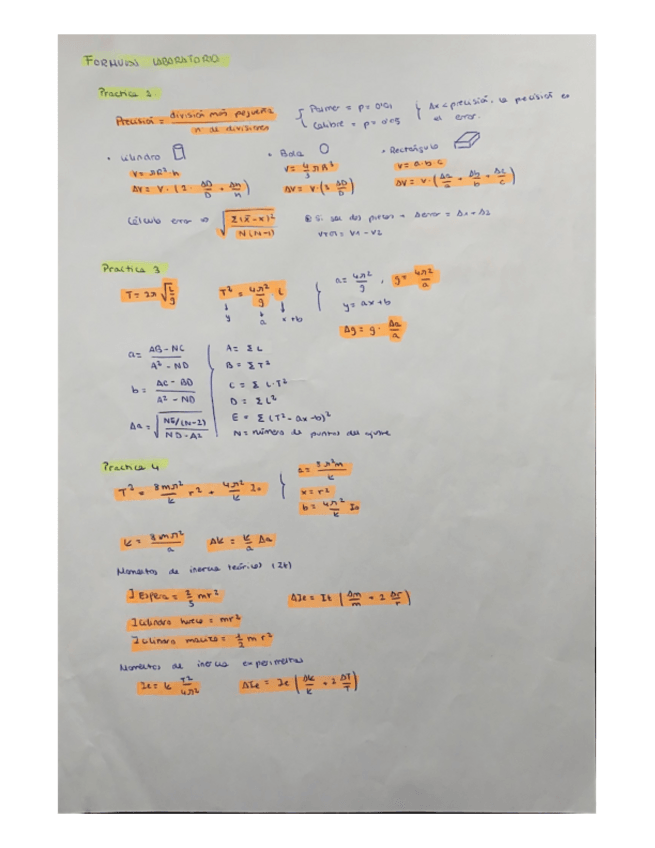 FORMULAS LABORATORIO
Practica 2.
Precisión = división más pequeña / n de divisiones { Palmer = p = 0'01 { Δx < precisión, la precisión es
Calibre = p = 0'05 el error.
• Cilindro • Bola • Rectángulo
V = πR²·h V = 4/3 πR³ V = a·b·c
ΔV = V·(2·ΔD/D + Δh/h) ΔV = V·(3 ΔD/D) ΔV = V·(Δa/a + Δb/b + Δc/c)
Cálculo error => √(Σ(x̄-x)²/N(N-1)) Si son dos piezas → Δerror = Δ1+Δ2
= V1 - V2
Practica 3
T = 2π √(L/g) T² = 4π²/g · L { a = 4π²/g, g = 4π²/a
y a x+b y = ax+b
Δg = g · Δa/a
a = (AB-NC)/(A²-ND) A = ΣL
B = ΣT²
b = (AC-BD)/(A²-ND) C = ΣL·T²
D = ΣL²
Δa = √((NE/(N-2))/(ND-A²)) E = Σ(T²-ax-b)²
N = número de puntos del ajuste
Practica 4
T² = 8mπ²/k r² + 4π²/k I₀ { a = 8π²m/k
x = r²
b = 4π²/k I₀
k = 8mπ²/a Δk = k/a Δa
Momentos de inercia teóricos (It)
I Esfera = 2/5 mr² ΔIt = It (Δm/m + 2 Δr/r)
I cilindro hueco = mr²
I cilindro macizo = 1/2 mr²
Momentos de inercia experimetras
Ie = k T²/4π² ΔIe = Ie (Δk/k + 2 ΔT/T)